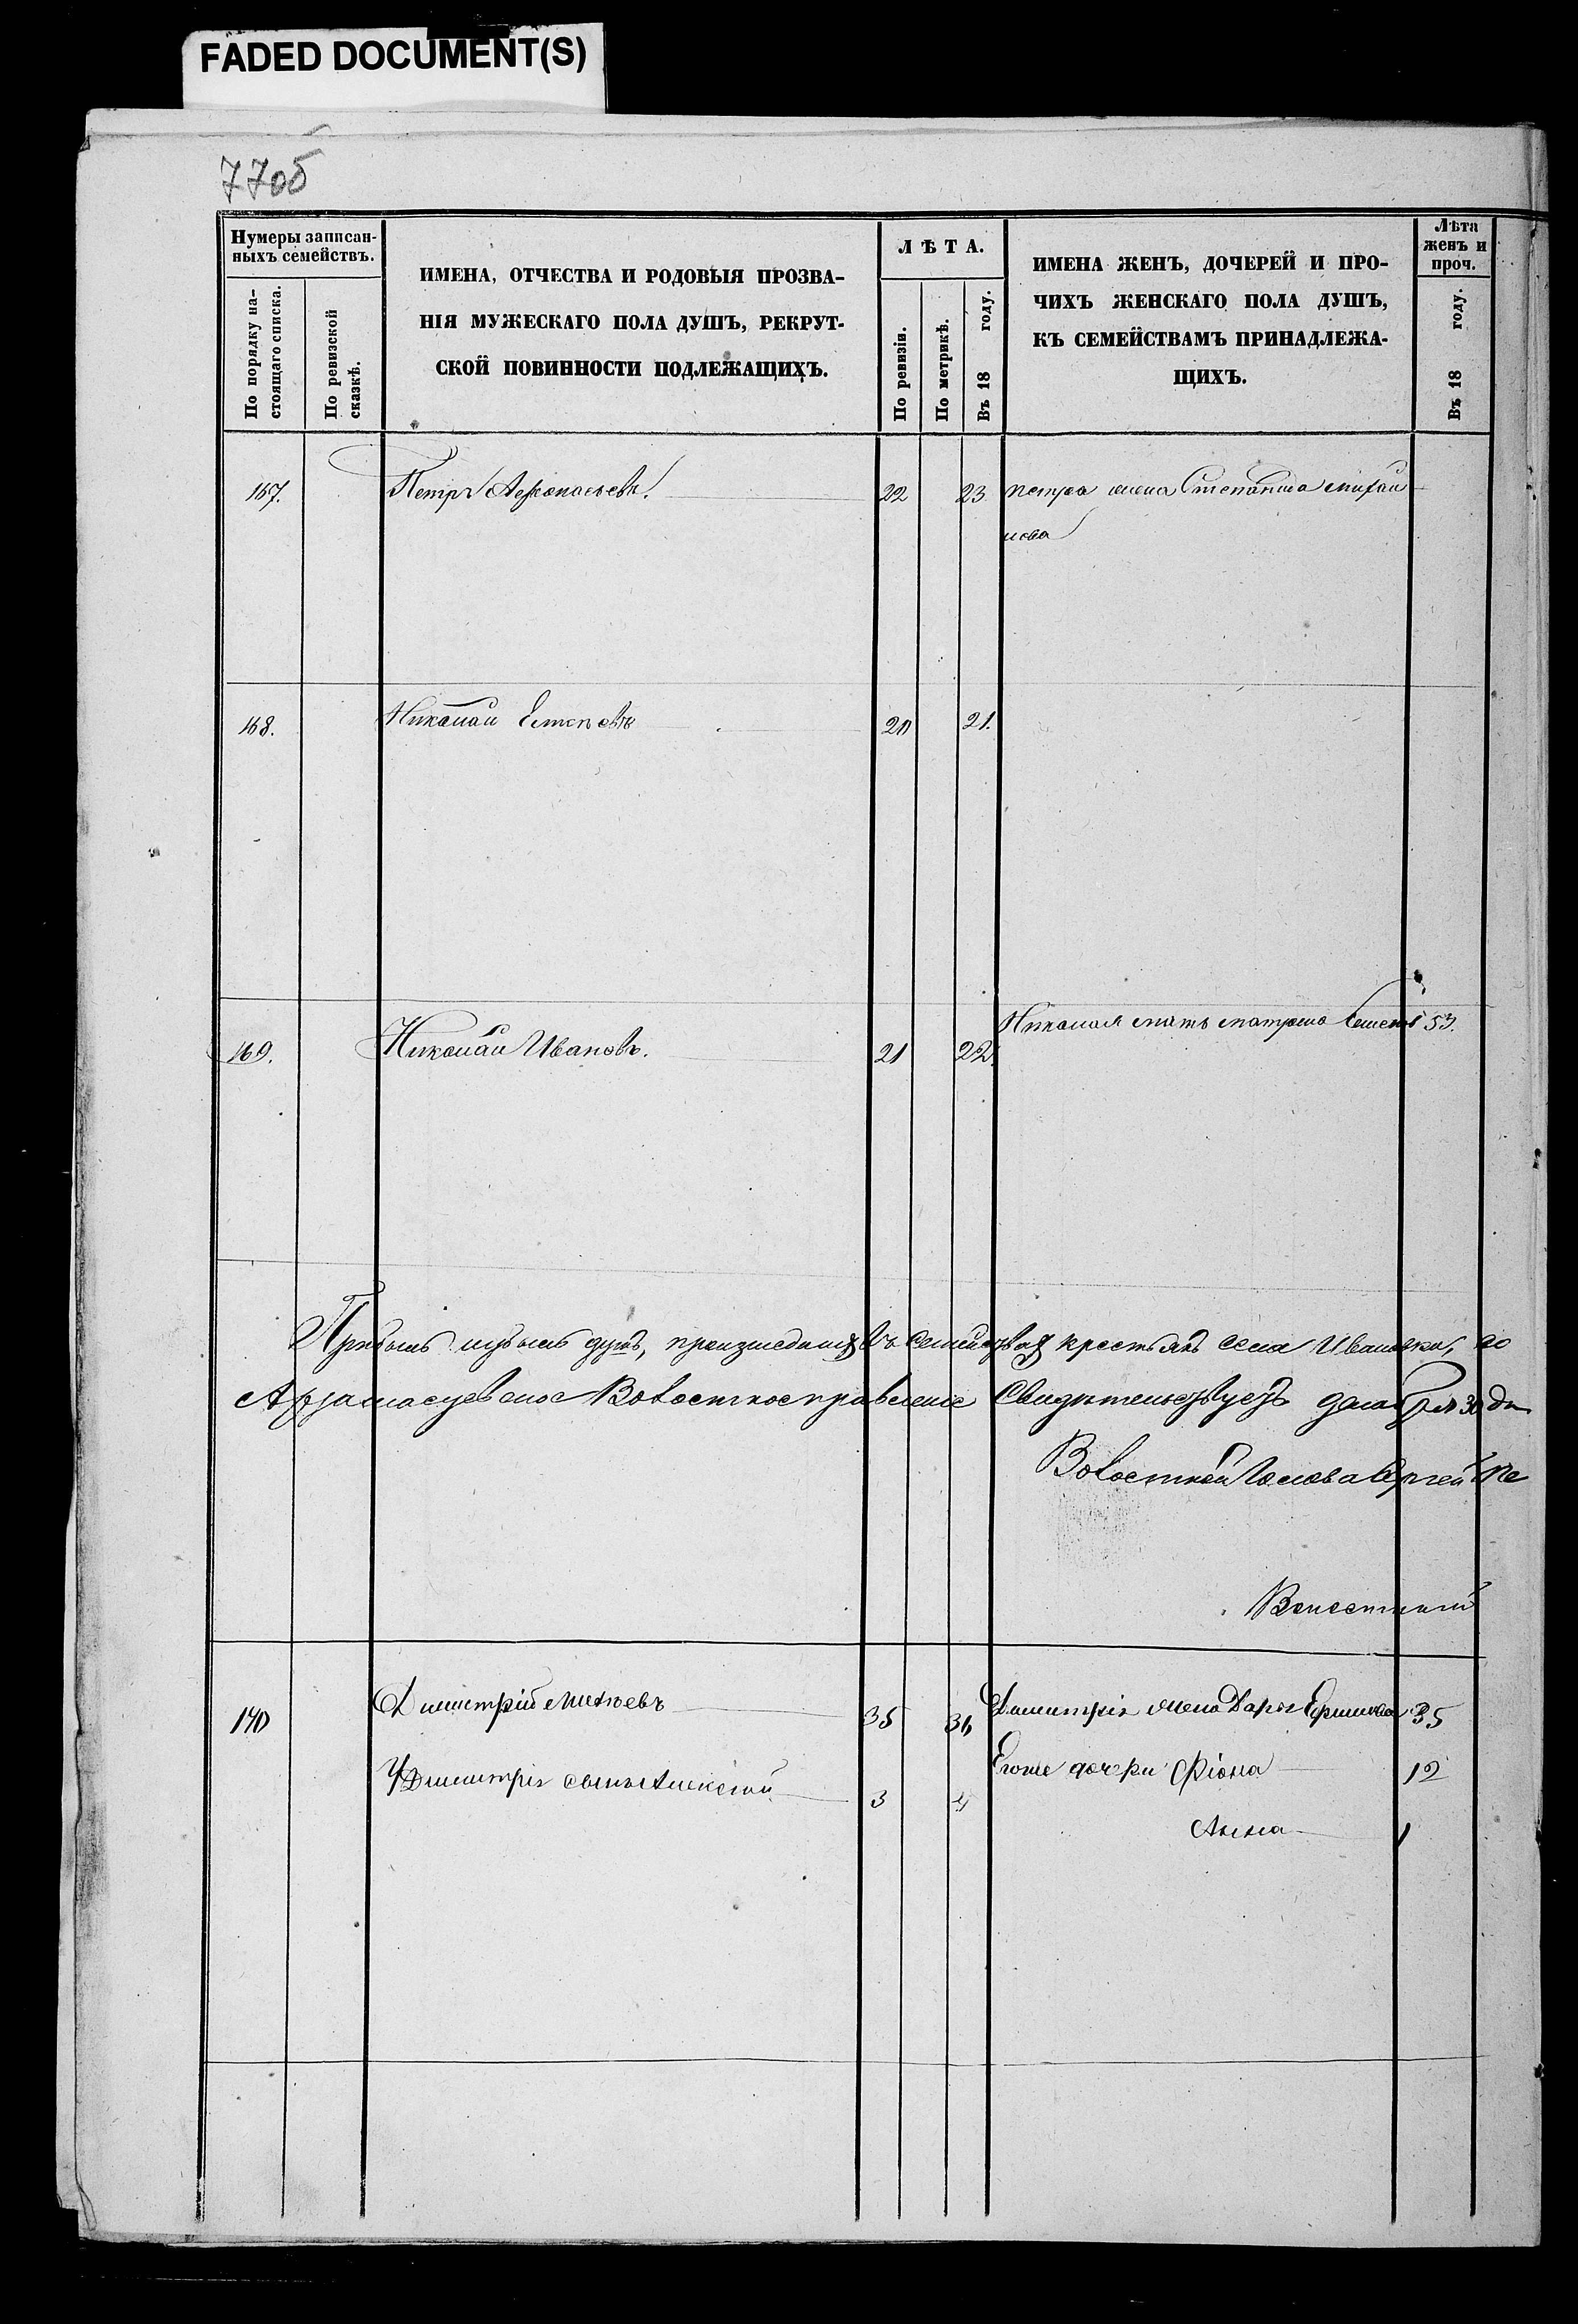 FADED DOCUMENT(S)
77об
Нумеры записан-
ныхъ семействъ.
По порядку на-
стоящаго списка.
По ревизской
сказкѣ.
ИМЕНА, ОТЧЕСТВА И РОДОВЫЯ ПРОЗВА-
НІЯ МУЖЕСКАГО ПОЛА ДУШЪ, РЕКРУТ-
СКОЙ ПОВИННОСТИ ПОДЛЕЖАЩИХЪ.
ЛѢТА.
По ревизіи.
По метрикѣ.
Въ 18 году.
ИМЕНА ЖЕНЪ, ДОЧЕРЕЙ И ПРО-
ЧИХЪ ЖЕНСКАГО ПОЛА ДУШЪ,
КЪ СЕМЕЙСТВАМЪ ПРИНАДЛЕЖА-
ЩИХЪ.
Лѣта
женъ и
проч.
Въ 18 году.
167. Петръ Афонасьевъ 22 23 Петра жена Степанида Михаи
лова
168. Николай 20 21.
169. Николай Ивановъ. 21 22. Николая мать Матрена 53.
душъ, въ семействахъ крестьянъ села Ивановки, во
Волостное правленіе Свидѣтельствуетъ 30 дн
Волостной Голова Сергей Пе
Волостной
170 Димитрій 35 36 Димитрія жена Дарья 35
У Димитрія сынъ Алексѣй 3 4 Егоже дочери Фіона 12
Анна 1